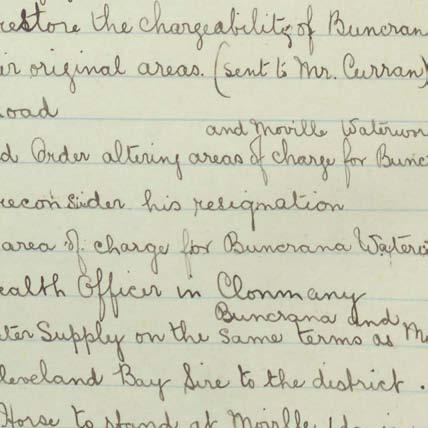 restore the chargeability of Buncran
ir original areas. (sent to Mr. Curran)
oad
and Moville Waterwor
d Order altering areas of charge for Bunc
reconsider his resignation
area of charge for Buncrana Waterw
ealth Officer in Clonmany
Buncrana and
ter Supply on the same terms as Mo
leveland Bay Sire to the district.
Horse to stand at Moville